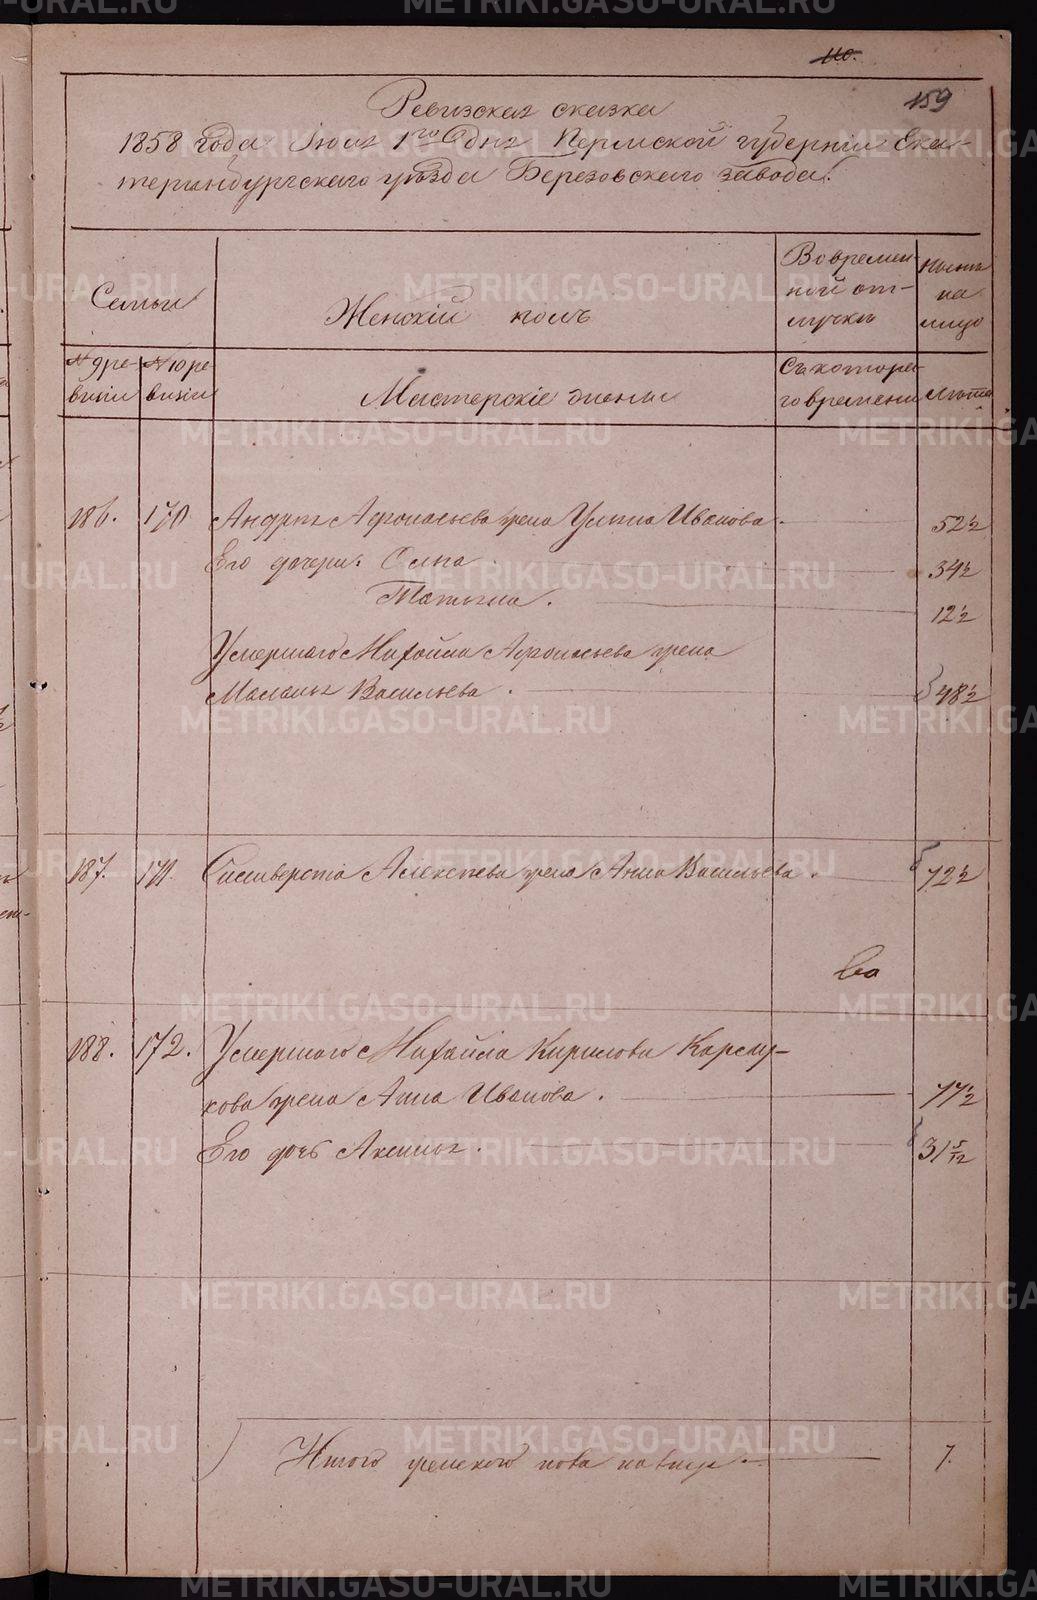 110.
159
Ревизская сказка
1858 года Июня 1го дня Пермской губерніи Ека-
теринбургскаго уѣзда Березовскаго завода.
Семьи
Женскій полъ
Во времен-
ной от-
лучкѣ
на
лицо
№ 9 ре-
визіи
№ 10 ре-
визіи
Мастерскіе жены
Съ котора-
го времени
лѣта
186. 170. Андрея Афонасьева жена Улита Иванова. 52½
Его дочери. Олена 34½
Татьяна. 12½
Умершаго Михайла Афонасьева жена
Маланья Васильева. 48½
187. 171. Сильверста Алексѣева жена Анна Васильева. 72½
188. 172. Умершаго Михайла Кирилова Карму-
кова жена Анна Иванова. 77½
Его дочь Аксинья. 31 5/12
Итого женского пола на лицо 7.
METRIKI.GASO-URAL.RU